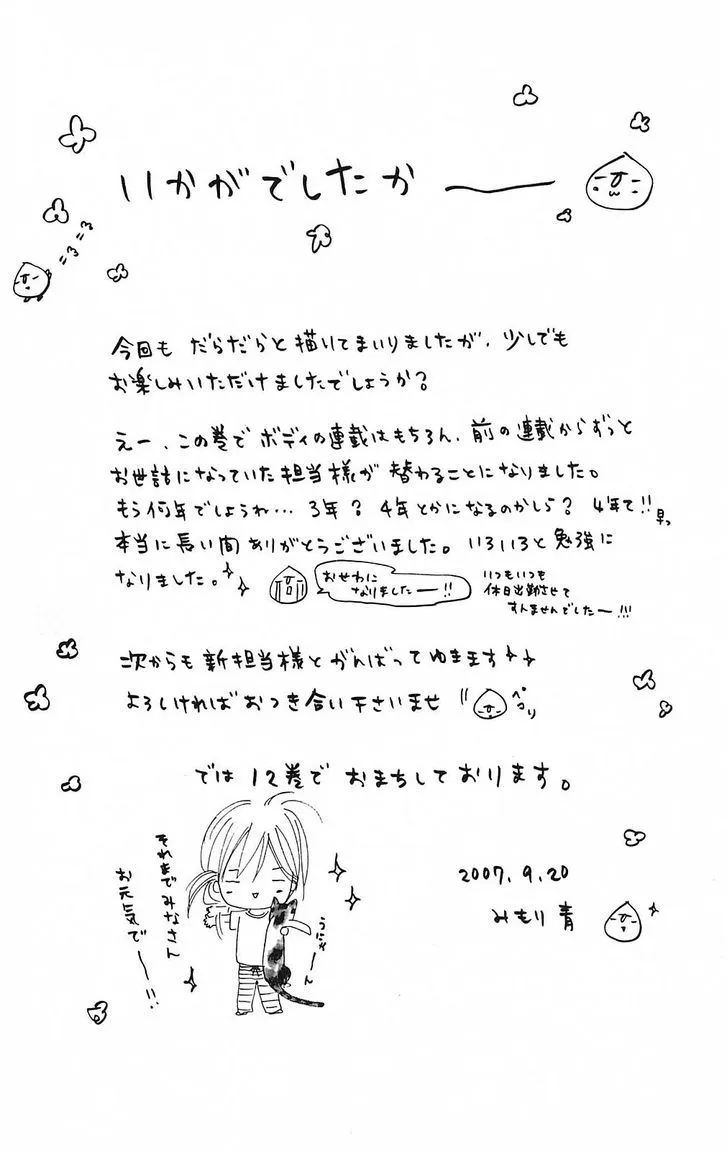 いかがでしたかー
今回も だらだらと描いてまいりましたが、少しでも
お楽しみいただけましたでしょうか?
えー、この巻で ボディの連載はもちろん、前の連載からずっと
お世話になっていた担当様が 替わることになりました。
もう何年でしょうね… 3年? 4年とかになるのかしら? 4年て!! 早っ
本当に長い間ありがとうございました。いろいろと勉強に
なりました。
おせわに
なりましたー!!
いつもいつも
休日出勤させて
すんませんでしたー!!!
次からも新担当様とがんばってゆきます
よろしければおつき合い下さいませ
ペコリ
では 12巻で おまちしております。
それまでみなさん
お元気でー!!
うにゃーん
2007.9.20
みもり青